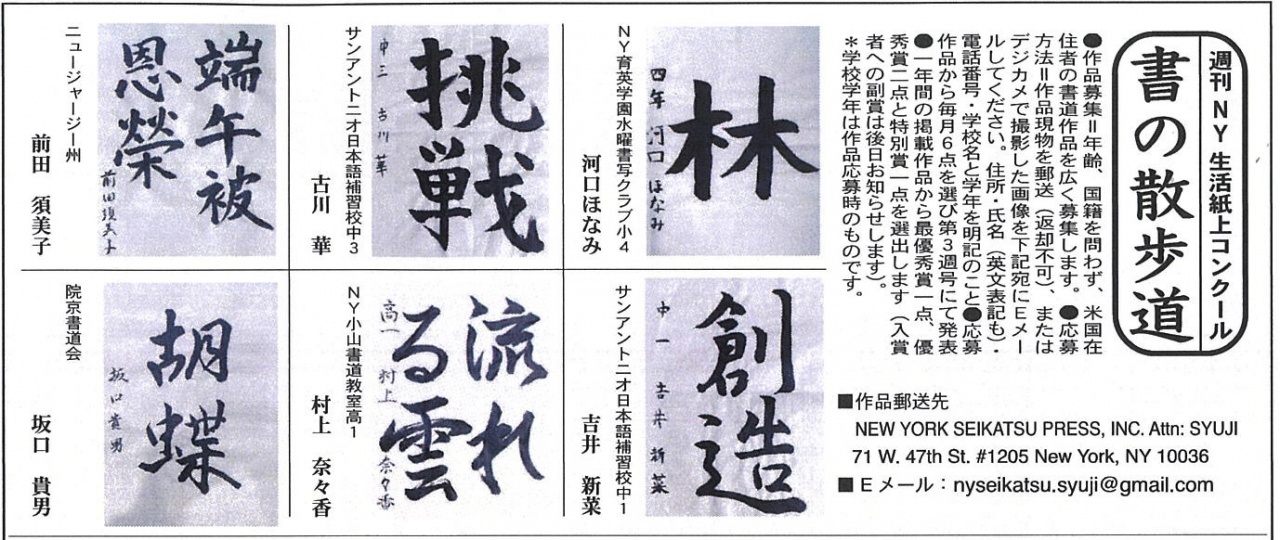 週刊NY生活紙上コンクール
書の散歩道
●作品募集＝年齢、国籍を問わず、米国在
住者の書道作品を広く募集します。●応募
方法＝作品現物を郵送（返却不可）、または
デジカメで撮影した画像を下記宛にEメー
ルしてください。住所・氏名（英文表記も）・
電話番号・学校名と学年を明記のこと●応募
作品から毎月6点を選び第3週号にて発表
●一年間の掲載作品から最優秀賞一点、優
秀賞二点と特別賞一点を選出します（入賞
者への副賞は後日お知らせします）。
＊学校学年は作品応募時のものです。
■作品郵送先
NEW YORK SEIKATSU PRESS, INC. Attn: SYUJI
71 W. 47th St. #1205 New York, NY 10036
■Eメール：nyseikatsu.syuji@gmail.com
林
四年 河口 ほなみ
NY育英学園水曜書写クラブ小4
河口ほなみ
挑戦
中三 古川 華
サンアントニオ日本語補習校中3
古川 華
端午被
恩榮
前田須美子
ニュージャージー州
前田 須美子
創造
中一 吉井 新菜
サンアントニオ日本語補習校中1
吉井 新菜
流れ
る雲
高一 村上 奈々香
NY小山書道教室高1
村上 奈々香
胡蝶
坂口貴男
院京書道会
坂口 貴男